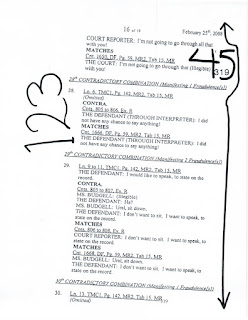 16 of 18
February 25th, 2008
COURT REPORTER: I'm not going to go through all that
with you!
MATCHES
Cnt. 1650, DF, Pg. 59, MR2, Tab 15, MR
THE COURT: I'm not going to go through this (Illegible)
with you!
45
319
123
28th CONTRADICTORY COMBINATION (Manifesting 1 Fraudulence[s])
28. Ln. 6, TMC1, Pg. 142, MR2, Tab 15, MR
(Omitted)
CONTRA.
Cnts. 805 to 806, Ex. R
THE DEFENDANT (THROUGH INTERPRETER): I did
not have any chance to say anything!
MATCHES
Cnt. 1660, DF, Pg. 59, MR2, Tab 15, MR
THE DEFENDANT (THROUGH INTERPRETER): I did
not have any chance to say anything!
29th CONTRADICTORY COMBINATION (Manifesting 1 Fraudulence[s])
29. Ln. 9 to 11, TMC1, Pg. 142, MR2, Tab 15, MR
THE DEFENDANT: I would like to speak, to state on the
record.
CONTRA.
Cnts. 805 to 809, Ex. R
MS. BUDGELL: (Illegible)
THE DEFENDANT: Ha?
MS. BUDGELL: Und, sit down.
THE DEFENDANT: I don't want to sit. I want to speak, to
state on the record.
MATCHES
Cnts. 806 to 808, Ex. R
COURT REPORTER: I don't want to sit. I want to speak, to
state on the record.
MATCHES
Cnt. 1668, DF, Pg. 59, MR2, Tab 15, MR
MS. BUDGELL: Und, sit down.
THE DEFENDANT: I don't want to sit. I want to speak, to
state on the record.
30th CONTRADICTORY COMBINATION (Manifesting 1 Fraudulence[s])
30. Ln. 13, TMC1, Pg. 142, MR2, Tab 15, MR
(Omitted)